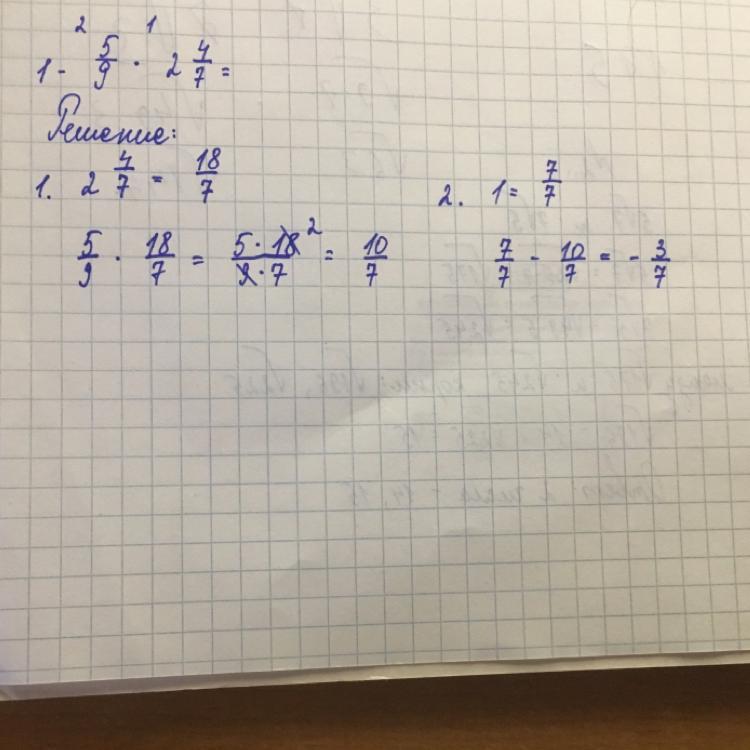 2 1
1 - 5/9 · 2 4/7 =
Решение:
1. 2 4/7 = 18/7
5/9 · 18/7 = 5 · 18 2 / 9 · 7 = 10/7
2. 1 = 7/7
7/7 - 10/7 = - 3/7